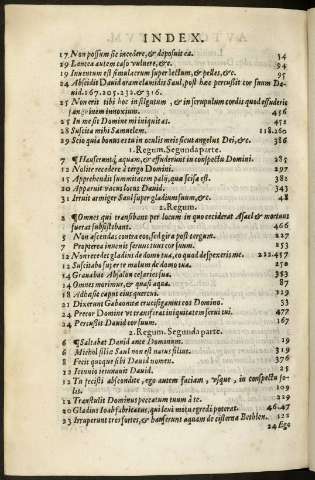 INDEX.
17 Non possum sic incedere, & deposuit ea. 34
29 Lancea autem caso vulnere, &c. 94
19 Inventum est simulacrum super lectum, & pelles, &c. 95
24 Abscidit David oram clamidis Saul, post hæc percussit cor suum Da-
vid. 167. 205. 232. & 316.
25 Non erit tibi hoc in singultum, & in scrupulum cordis quod effuderis
sanguinem innoxium. 456
25 In me sit Domine mi iniquitas. 451
28 Suscita mihi Samuelem. 118. 260
29 Scio quia bonus es tu in oculis meis sicut angelus Dei, &c. 386
1. Regum. Segunda parte.
7 ¶ Hauserunt aquam, & effuderunt in conspectu Domini. 285
12 Nolite recedere à tergo Domini. 297
15 Apprehendit summitatem palij, quæ scisa est. 381
20 Apparuit vacuus locus David. 343
31 Irruit armiger Saul super gladium suum, &c. 48
2. Regum.
2 ¶ Omnes qui transibant per locum in quo ceciderat Asael & mortuus
fuerat subsistebant. 466
5 Non ascendas contra eos, sed gira post tergum. 227
7 Propterea invenit servus tuus cor suum. 253
12 Non recedet gladius de domo tua, eo quod despexeris me. 222. 457
12 Suscitabo super te malum de domo tua. 250
14 Gravabat Absalon cesaries sua. 353
14 Omnes morimur, & quasi aqua. 87
18 Adhæsit caput eius quercui. 129
21 Dixerunt Gabaonitæ crucifigamus eos Domino. 53
24 Precor Domine vt transferas iniquitatem servi tui. 277
24 Percussit David cor suum. 167
2. Regum. Segunda parte.
6 ¶ Saltabat David ante Dominum. 19
6 Michol filiæ Saul non est natus filius. 319
8 Fecit quoque sibi David nomen. 376
12 Ieiunio ieiunavit David. 25
12 Tu fecisti abscondite, ego autem faciam, vsque, in conspectu so-
lis. 109
12 Transtulit Dominus peccatum tuum à te. 229
20 Gladius Ioab fabricatus, qui levi motu egredi poterat. 46. 47
23 Irruperunt tres fortes, & hauserunt aquam de cisterna Bethlen. 125
24 Ego